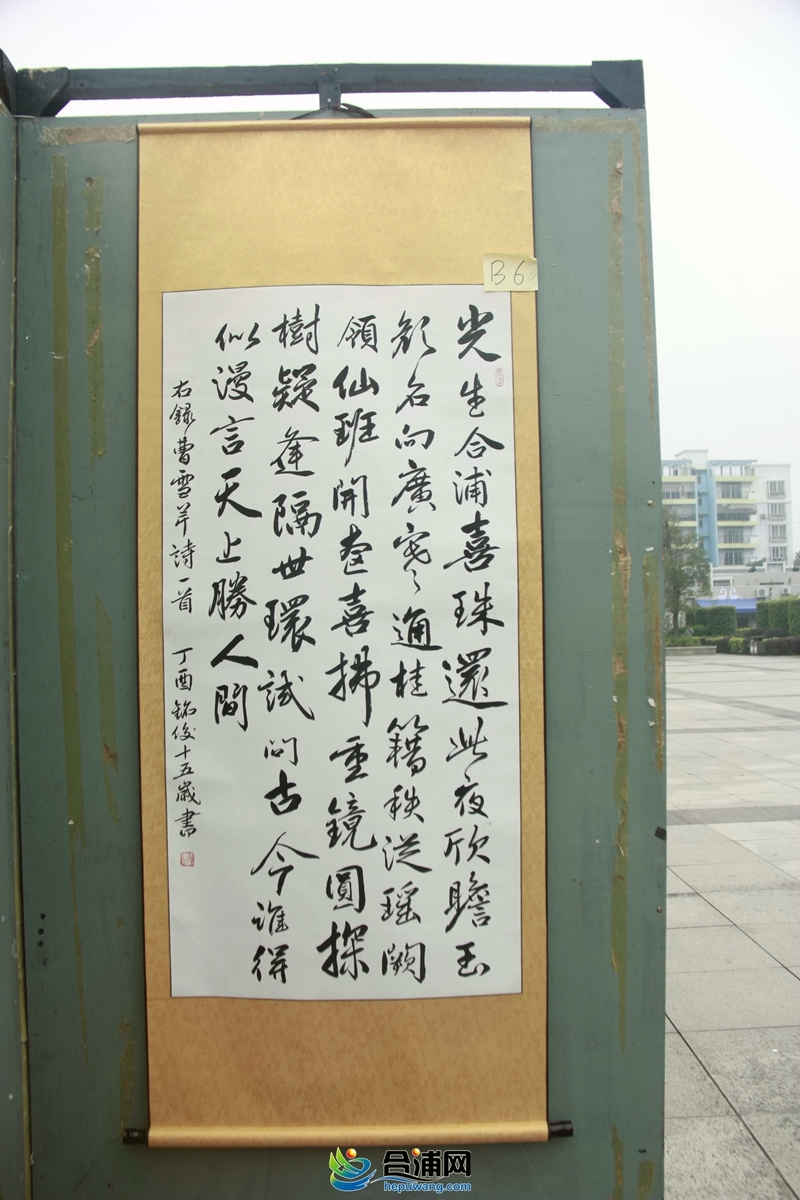 B6
光生合浦喜珠還此夜欣瞻玉
顏名向廣寒通桂籍秩從瑤闕
領仙班開奩喜拂重鏡圓探
樹疑逢隔世環試問古今誰得
似漫言天上勝人間
右錄曹雪芹詩一首 丁酉銘俊十五歲書
合浦网
hepuwang.com